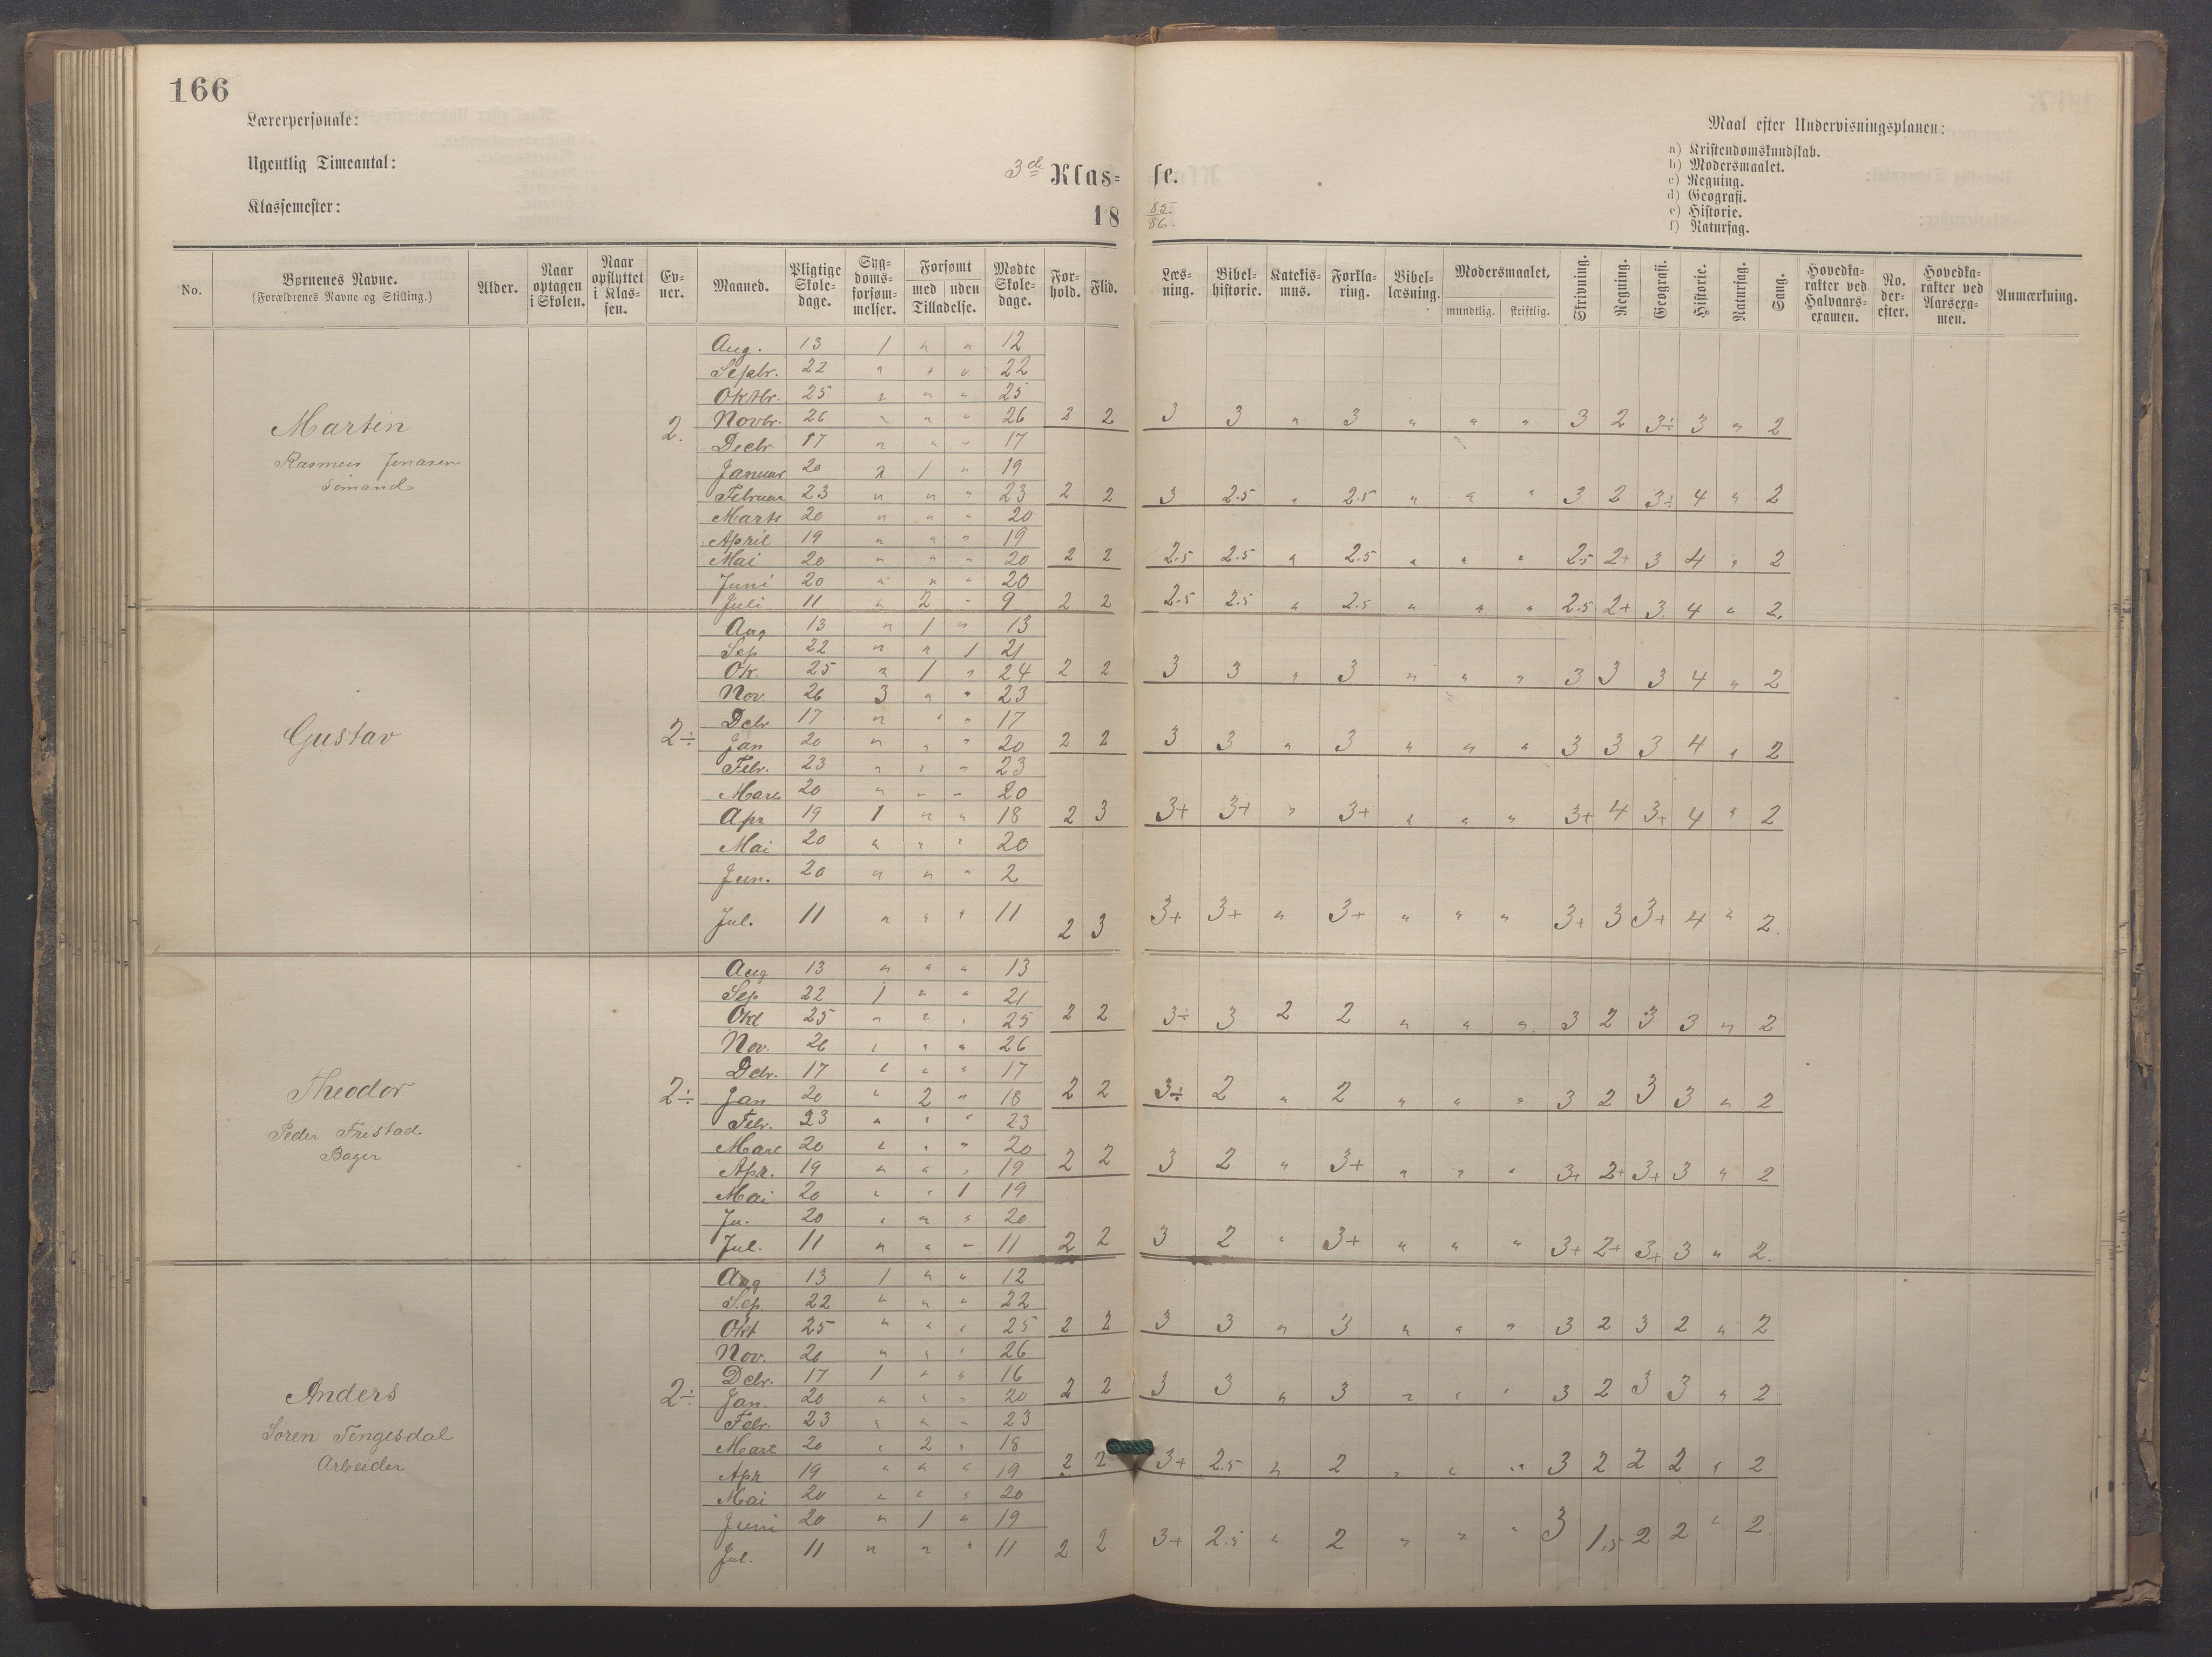 166
Lærerpersonale:
Ugentlig Timeantal:
Klassemester:
3de Klas- se.
18 85/86.
Maal efter Undervisningsplanen:
a) Kristendomskundskab.
b) Modersmaalet.
c) Regning.
d) Geografi.
e) Historie.
f) Naturfag.
No. Børnenes Navne. (Forældrenes Navne og Stilling.) Alder. Naar optagen i Skolen. Naar opflyttet i Klassen. Evner. Maaned. Pligtige Skoledage. Sygdomsforsømmelser. Forsømt med uden Tilladelse. Mødte Skoledage. Forhold. Flid. Læsning. Bibelhistorie. Katekismus. Forklaring. Bibellæsning. Modersmaalet, mundtlig. skriftlig. Skrivning. Regning. Geografi. Historie. Naturfag. Sang. Hovedkarakter ved Halvaarsexamen. No. derefter. Hovedkarakter ved Aarsexamen. Anmærkning.
Martin
Rasmus Jonasen
Sömand
2.
Aug. 13 1 " " 12
Septbr. 22 " " " 22
Oktbr. 25 " " " 25
Novbr. 26 " " " 26 2 2 3 3 " 3 " " " 3 2 3÷ 3 " 2
Decbr. 17 " " " 17
Januar 20 " 1 " 19
Februar 23 " " " 23 2 2 3 2.5 " 2.5 " " " 3 2 3÷ 4 " 2
Marts 20 " " " 20
April 19 " " " 19
Mai 20 " " " 20 2 2 2.5 2.5 " 2.5 " " " 2.5 2+ 3 4 " 2
Juni 20 " " " 20
Juli 11 " 2 " 9 2 2 2.5 2.5 " 2.5 " " " 2.5 2+ 3. 4 " 2.
Gustav
2÷
Aug 13 " 1 " 13
Sep 22 " " 1 21
Ok. 25 " 1 " 24 2 2 3 3 " 3 " " " 3 3 3 4 " 2
Nov. 26 3 " " 23
Debr 17 " " " 17
Jan 20 " " " 20 2 2 3 3 " 3 " " " 3 3 3 4 " 2
Febr. 23 " " " 23
Mars 20 " " " 20
Apr 19 1 " " 18 2 3 3+ 3+ " 3+ " " " 3+ 4 3+ 4 " 2
Mai 20 " " " 20
Jun. 20 " " " 2
Jul. 11 " " " 11 2 3 3+ 3+ " 3+ " " " 3+ 3 3+ 4 " 2.
Theodor
Peder Fristad
Bager
2÷
Aug 13 " " " 13
Sep 22 1 " " 21
Okt 25 " " " 25 2 2 3÷ 3 2 2 " " " 3 2 3 3 " 2
Nov. 26 " " " 26
Debr. 17 " " " 17
Jan 20 " 2 " 18 2 2 3÷ 2 " 2 " " " 3 2 3 3 " 2
Febr. 23 " " " 23
Mars 20 " " " 20
Apr. 19 " " " 19 2 2 3 2 " 3+ " " " 3+ 2+ 3+ 3 " 2
Mai 20 " " 1 19
Ju. 20 " " " 20
Jul. 11 " " " 11 2 2 3 2 " 3+ " " " 3+ 2+ 3+ 3 " 2.
Anders
Sören Tengesdal
Arbeider
2÷
Aug 13 1 " " 12
Sep. 22 " " " 22
Okt 25 " " " 25 2 2 3 3 " 3 " " " 3 2 3 2 " 2
Nov. 26 " " " 26
Debr. 17 1 " " 16
Jan. 20 " " " 20 2 2 3 3 " 3 " " " 3 2 3 3 " 2
Febr. 23 " " " 23
Mars 20 " 2 " 18
Apr 19 " " " 19 2 2 3+ 2.5 " 2 " " " 3 2 2 2 " 2
Mai 20 " " " 20
Juni 20 " 1 " 19
Jul. 11 " " " 11 2 2 3+ 2.5 " 2 " " " 3 1.5 2 2 " 2.